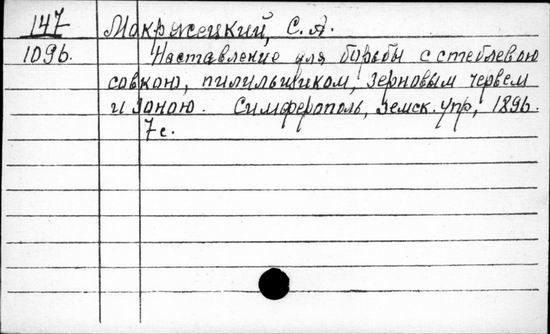 147 Мокржецкий, С.А.
1096. Наставление для борьбы с стеблевою
совкою, пилильщиком, зерновым червем
и зоною. Симферополь, земск. упр., 1896.
7 с.